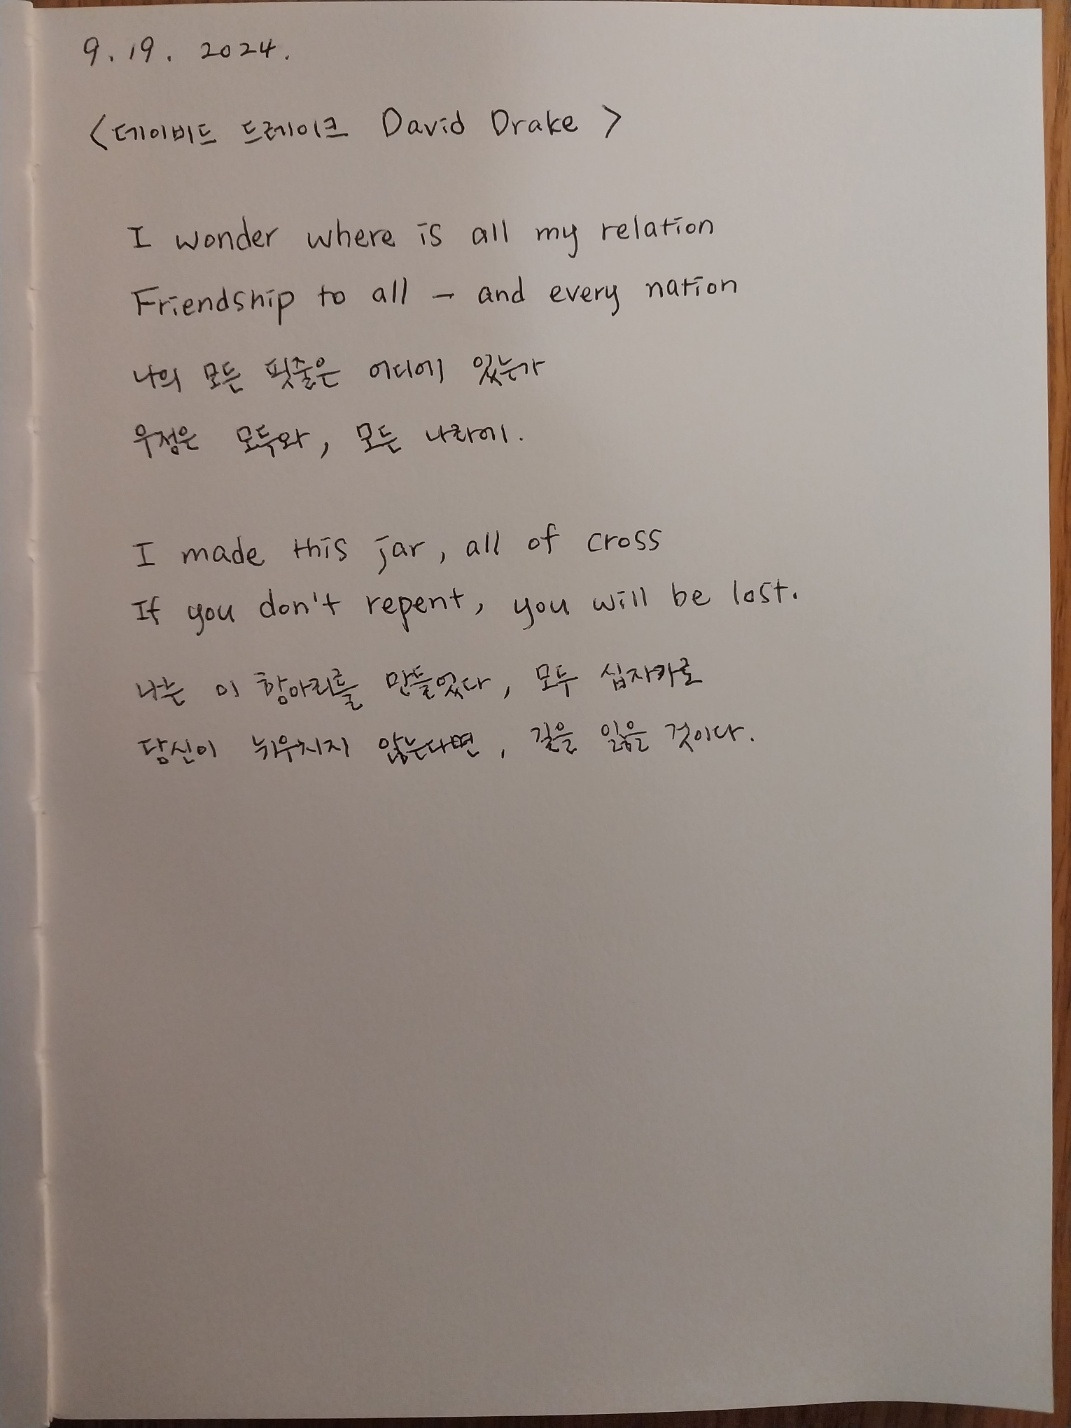 9. 19. 2024.
<데이비드 드레이크 David Drake>
I wonder where is all my relation
Friendship to all – and every nation
나의 모든 핏줄은 어디에 있는가
우정은 모두와, 모든 나라에.
I made this jar, all of cross
If you don't repent, you will be lost.
나는 이 항아리를 만들었다, 모두 십자가로
당신이 뉘우치지 않는다면, 길을 잃을 것이다.